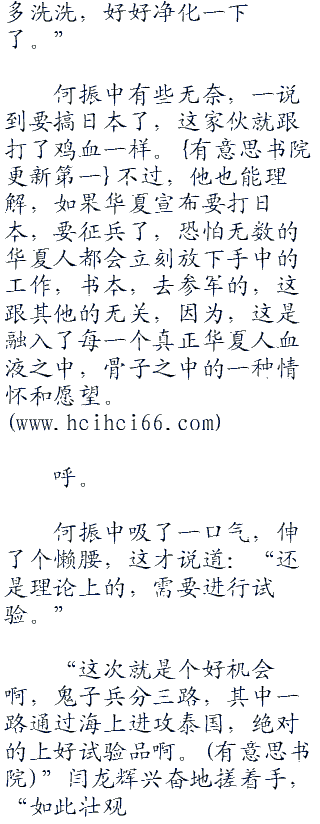 多洗洗，好好净化一下
了。”
何振中有些无奈，一说
到要搞日本了，这家伙就跟
打了鸡血一样。{有意思书院
更新第一}不过，他也能理
解，如果华夏宣布要打日
本，要征兵了，恐怕无数的
华夏人都会立刻放下手中的
工作，书本，去参军的，这
跟其他的无关，因为，这是
融入了每一个真正华夏人血
液之中，骨子之中的一种情
怀和愿望。
(www.hcihci66.com)
呼。
何振中吸了一口气，伸
了个懒腰，这才说道：“还
是理论上的，需要进行试
验。”
“这次就是个好机会
啊，鬼子兵分三路，其中一
路通过海上进攻泰国，绝对
的上好试验品啊。(有意思书
院)”闫龙辉兴奋地搓着手，
“如此壮观